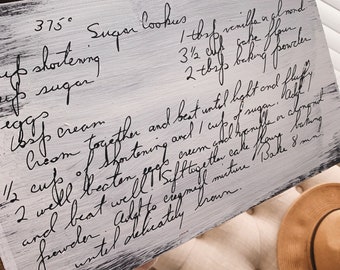 375° Sugar Cookies
up shortening 1 tsp vanilla or almond
up sugar 3½ cup cake flour
eggs 2 tbsp baking powder
bsp cream
Cream together and beat until light and fluffy
1/2 cup of shortening and 1 cup of sugar. Add
2 well beaten eggs, cream and vanilla or almond
and beat well. Sift together cake flour, baking
powder. Add to creamed mixture. Bake 8 min
until delicately brown.